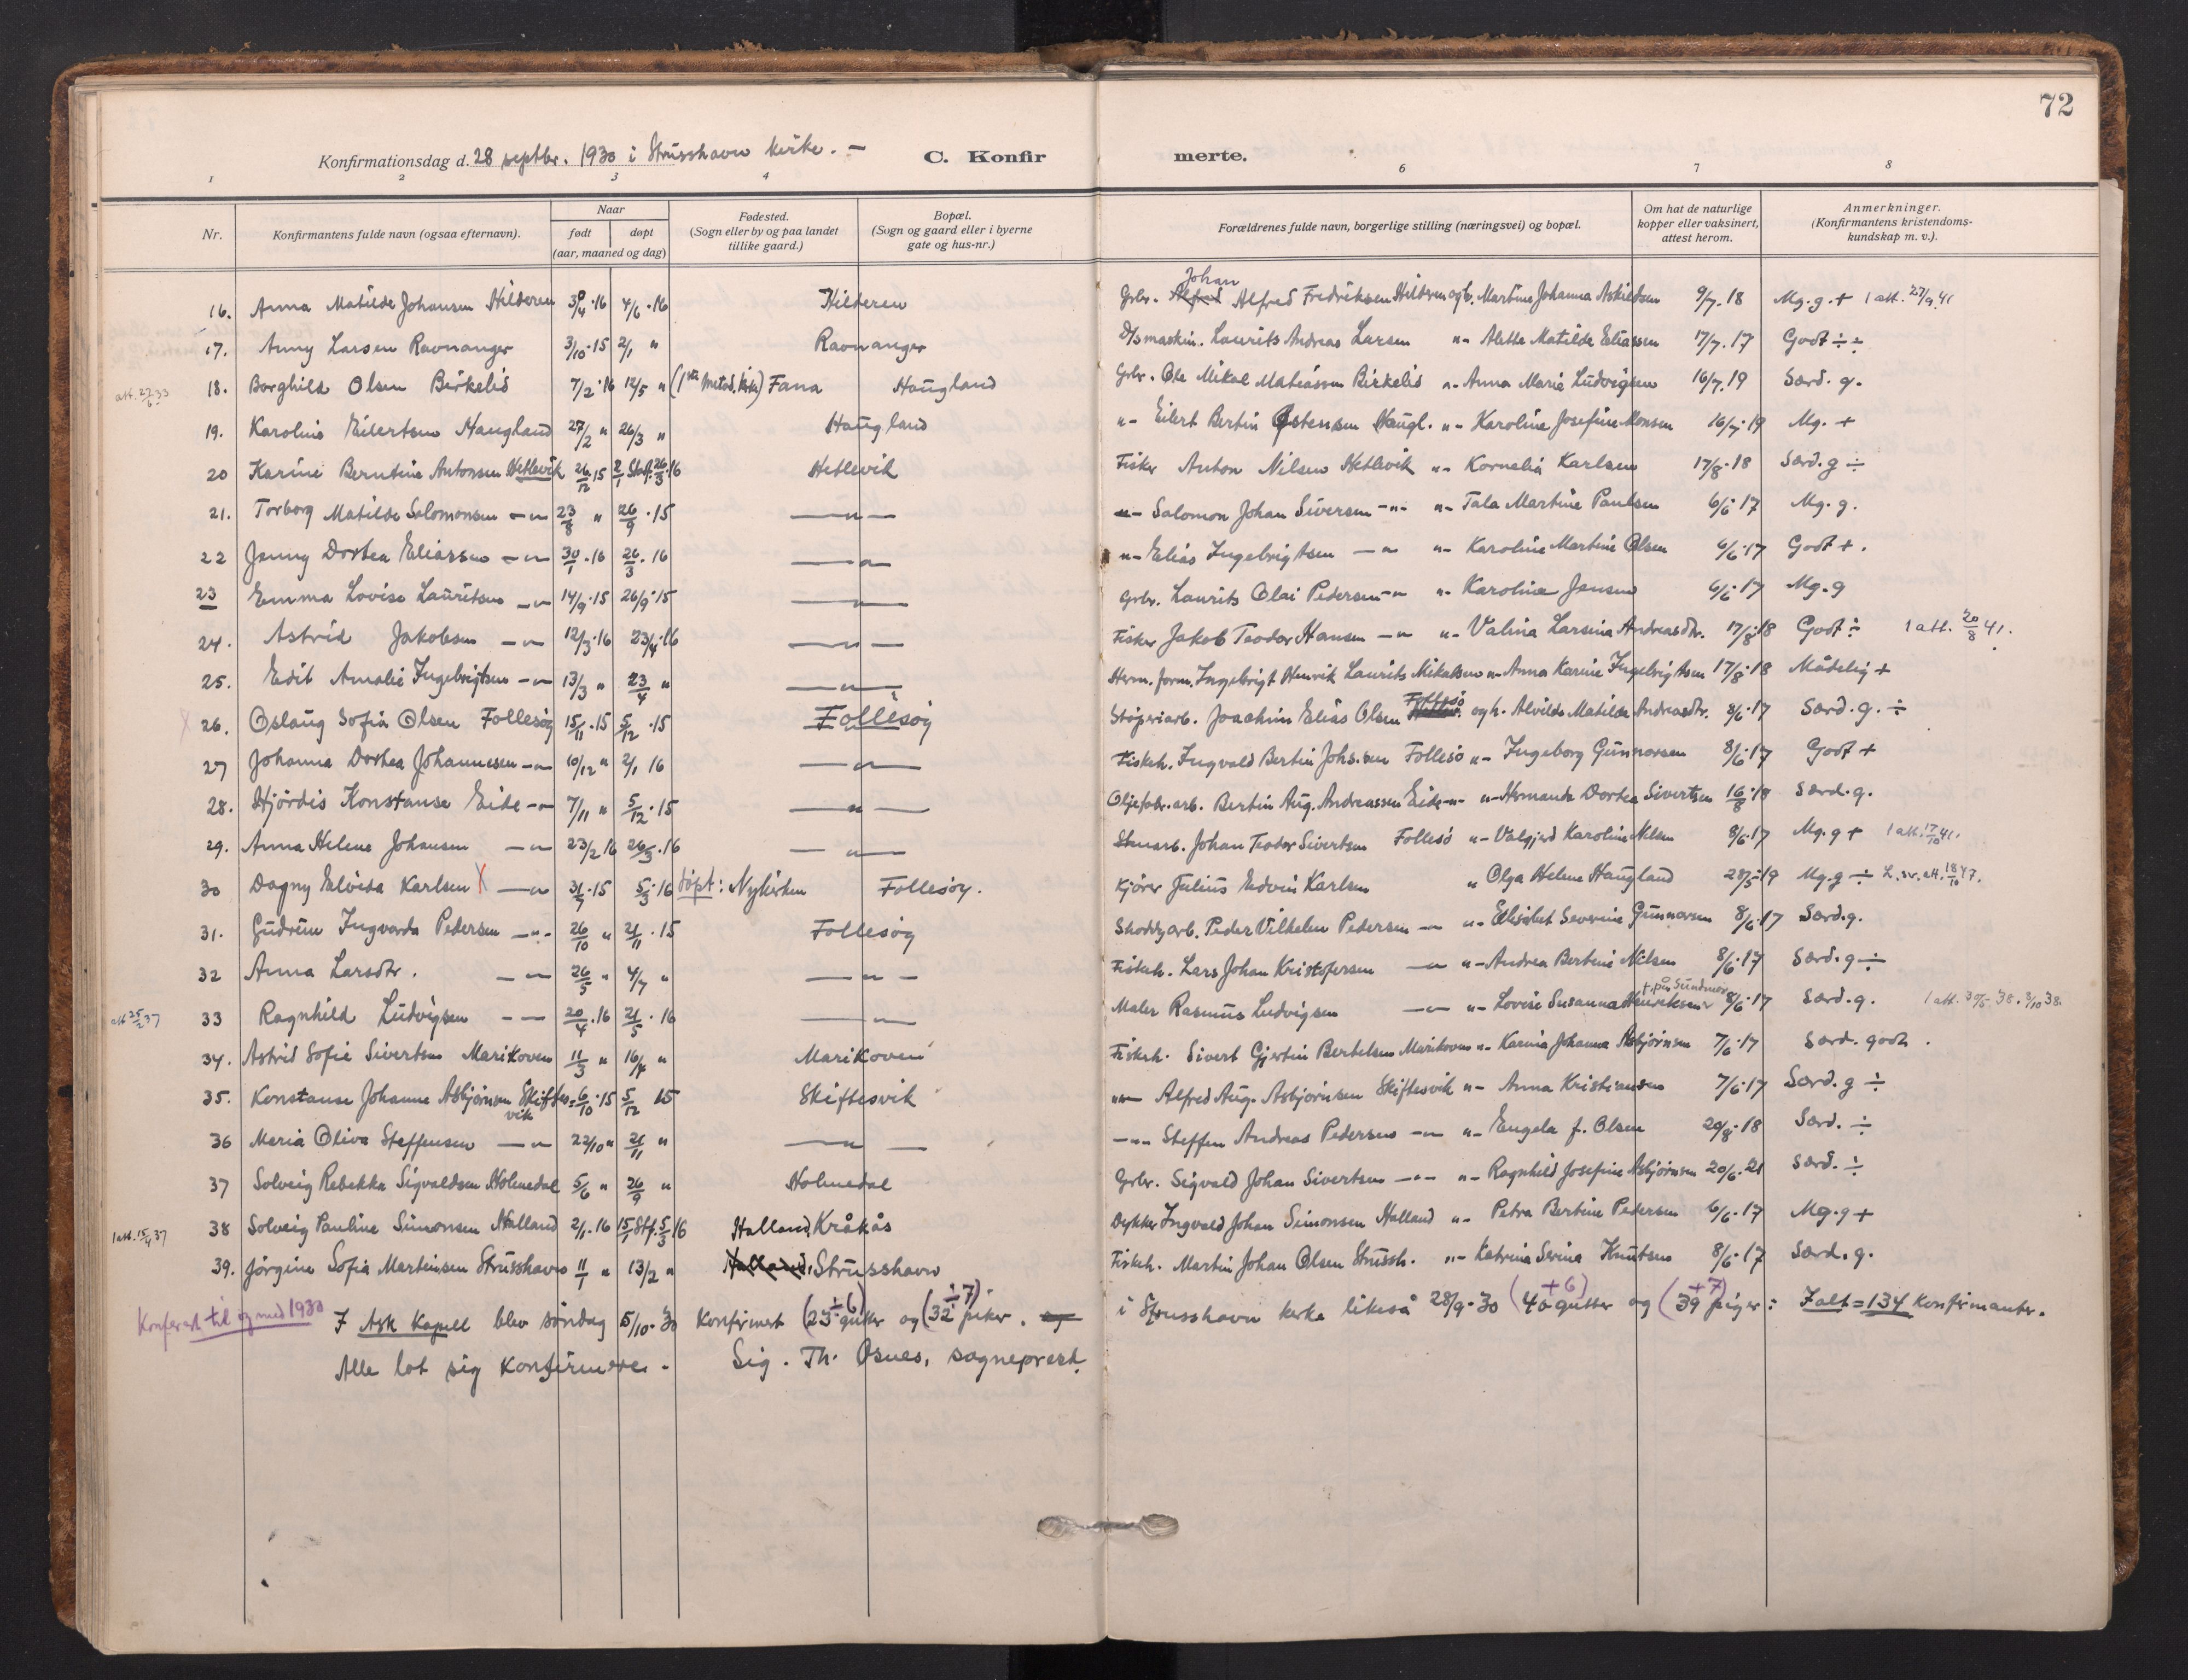 72
Konfirmationsdag d. 28 septbr. 1930 i Strusshavn kirke. – C. Konfirmerte.
1 2 3 4 6 7 8
Nr. Konfirmantens fulde navn (ogsaa efternavn). Naar født døpt (aar, maaned og dag) Fødested. (Sogn eller by og paa landet tillike gaard.) Bopæl. (Sogn og gaard eller i byerne gate og hus-nr.) Forældrenes fulde navn, borgerlige stilling (næringsvei) og bopæl. Om hat de naturlige kopper eller vaksinert, attest herom. Anmerkninger. (Konfirmantens kristendoms-kundskap m. v.).
16. Anna Matilde Johansen Hilderen 30/4·16 4/6·16 Hilderen Grbr. Johan Alfred Fredriksen Hilderen og h. Martine Johanna Askildsen 9/7.18 Mg.g.+ 1 att. 27/9 41
17. Anny Larsen Ravnanger 3/10·15 2/1 " Ravnanger D/s maskin. Laurits Andreas Larsen "- Alette Matilde Eliassen 17/7.17 Godt ÷
att. 22/6 33 18. Borghild Olsen Birkelid 7/2·16 12/5 " (1ste Metod. kirke) Fana Haugland Grbr. Ole Mikal Matiassen Birkelid "- Anna Marie Ludvigsen 16/7.19 Særd. g.
19. Karoline Eilertsen Haugland 27/2 " 26/3 " Haugland "- Eilert Bertin Østensen Haugl. "- Karoline Josefine Monsen 16/7·19 Mg. +
20 Karine Berntine Antonsen Hetlevik 26/12·15 2/1 Stadf. 26/3·16 Hetlevik Fisker Anton Nilsen Hetlevik "- Kornelia Karlsen 17/8·18 Særd. g ÷
21. Torborg Matilde Salomonsen -"- 23/8 " 26/9·15 -"- "- Salomon Johan Siversen -"- "- Tala Martine Paulsen 6/6·17 Mg. g.
22 Jenny Dortea Eliassen -"- 30/1·16 26/3·16 -"- "- Elias Ingebrigtsen -"- "- Karoline Martine Olsen 6/6·17 Godt +.
23 Emma Lovise Lauritsen -"- 14/9·15 26/9·15 -"- Grbr. Laurits Olai Pedersen -"- "- Karoline Jensen 6/6·17 Mg. g
24. Astrid Jakobsen -"- 12/3·16 23/4·16 -"- Fisker Jakob Teodor Hansen -"- "- Valina Larsina Andreasdtr. 17/8·18 Godt ÷ 1 att. 20/8 41.
25. Edit Amalie Ingebrigtsen -"- 13/3 " 23/4 " -"- Herm. form. Ingebrigt Henrik Laurits Mikalsen "- Anna Karine Ingebrigtsen 17/8·18 Mådelig +
26. Oslaug Sofia Olsen Follesøy 15/11·15 5/12·15 Follesøy Støperiarb. Joachim Elias Olsen Follesø og h. Alvilde Matilde Andreasdtr. 8/6·17 Særd. g. ÷
27 Johanna Dortea Johannesen -"- 10/12 " 2/1 16 -"- Fiskeh. Ingvald Bertin Johs.sen Follesø "- Ingeborg Gunnarsen 8/6·17 Godt +
28. Hjördis Konstanse Eide -"- 7/11 " 5/12·15 -"- Oljefabr.arb. Bertin Aug. Andreassen Eide -"- "- Hermanda Dortea Sivertsen 16/8·18 Særd. g.
29. Anna Helene Johansen -"- 23/2 16 26/3·16 -"- Stenarb. Johan Teodor Sivertsen Follesø "- Valgjerd Karoline Nilsen 8/6·17 Mg. g + 1 att. 17/10 41.
30 Dagny Elvida Karlsen X -"- 31/7·15 5/3·16 døpt: Nykirken Follesøy. Kjører Julius Edvin Karlsen " Olga Helene Haugland 28/5·19 Mg. g ÷ L. sv. att. 18/10 47.
31. Gudrun Ingvarda Pedersen -"- 26/10 " 21/11·15 Follesøy Shoddyarb. Peder Vilhelm Pedersen -"- "- Elisabet Severine Gunnarsen 8/6·17 Særd. g.
32 Anna Larsdtr. -"- 26/5 " 4/7 " -"- Fiskeh. Lars Johan Kristofersen -"- "- Andrea Bertine Nilsen 8/6·17 Særd. g ÷
att 25/2 37 33 Ragnhild Ludvigsen -"- 20/4·16 21/5·16 -"- Maler Rasmus Ludvigsen -"- "- Lovise Susanna Henriksen f. på Sundmør 8/6·17 Særd. g. 1 att. 30/5 38. 3/10 38.
34. Astrid Sofie Sivertsen Marikoven 11/3 " 16/4 " Marikoven Fiskeh. Sivert Gjertin Bertelsen Marikoven "- Karina Johanna Asbjørnsen 7/6·17 Særd. godt.
35. Konstanse Johanne Asbjørnsen Skiftesvik 6/10·15 5/12 15 Skiftesvik "- Alfred Aug. Asbjørnsen Skiftesvik "- Anna Kristiansen 7/6·17 Særd. g ÷
36 Maria Oliva Steffensen -"- 22/10 " 21/11 " -"- -"- Steffen Andreas Pedersen -"- "- Engela f. Olsen 20/8·18 Særd. ÷
37 Solveig Rebekka Sigvaldsen Holmedal 5/6 " 26/9 " Holmedal Grbr. Sigvald Johan Sivertsen -"- "- Ragnhild Josefine Asbjørnsen 20/6·21 Særd. ÷
1 att. 15/4 37 38 Solveig Pauline Simonsen Halland 2/1·16 15/1 Stf. 5/3 16 Halland, Kråkås Dykker Ingvald Johan Simonsen Halland "- Petra Bertine Pedersen 6/6·17 Mg. g +
39. Jørgine Sofia Martinsen Strusshavn 11/1 " 13/2 " Halland, Strusshavn Fiskeh. Martin Johan Olsen Strussh. "- Katrina Serina Knutsen 8/6·17 Særd. g.
Konferert til og med 1930 I Ask Kapell blev søndag 5/10·30 konfirmert (23 ÷6) gutter og (32 ÷7) piker. og i Strusshavn kirke likeså 28/9·30 (40 +6) gutter og (39 +7) piger: Ialt = 134 konfirmanter.
Alle lot sig konfirmere. – Sig. Th. Osnes, sogneprest.